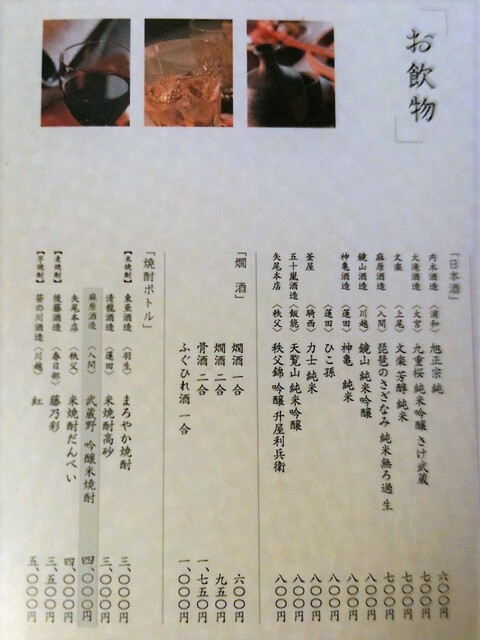 「お飲物」
「日本酒」
内木酒造 〈浦和〉 旭正宗 純 六〇〇円
大滝酒造 〈大宮〉 九重桜 純米吟醸 さけ武蔵 七〇〇円
文楽 〈上尾〉 文楽 芳醇 純米 七〇〇円
麻原酒造 〈入間〉 琵琶のさざなみ 純米無ろ過 生 七〇〇円
鏡山酒造 〈川越〉 鏡山 純米吟醸 八〇〇円
神亀酒造 〈蓮田〉 神亀 純米 八〇〇円
〈蓮田〉 ひこ孫 八〇〇円
釜屋 〈騎西〉 力士 純米 八〇〇円
五十嵐酒造 〈飯能〉 天覧山 純米吟醸 八〇〇円
矢尾本店 〈秩父〉 秩父錦 吟醸 升屋利兵衛 八〇〇円
「燗 酒」
燗酒 一合 六〇〇円
燗酒 二合 九五〇円
骨酒 二合 一、七五〇円
ふぐひれ酒 一合 一、〇〇〇円
「焼酎ボトル」
【米焼酎】 東亜酒造 〈羽生〉 まろやか焼酎 三、〇〇〇円
清龍酒造 〈蓮田〉 米焼酎高砂 三、〇〇〇円
麻原酒造 〈入間〉 武蔵野 吟醸米焼酎 四、〇〇〇円
矢尾本店 〈秩父〉 米焼酎だんべい 四、〇〇〇円
【麦焼酎】 後藤酒造 〈春日部〉 藤乃彩 三、五〇〇円
【芋焼酎】 笹の川酒造 〈川越〉 紅 五、〇〇〇円